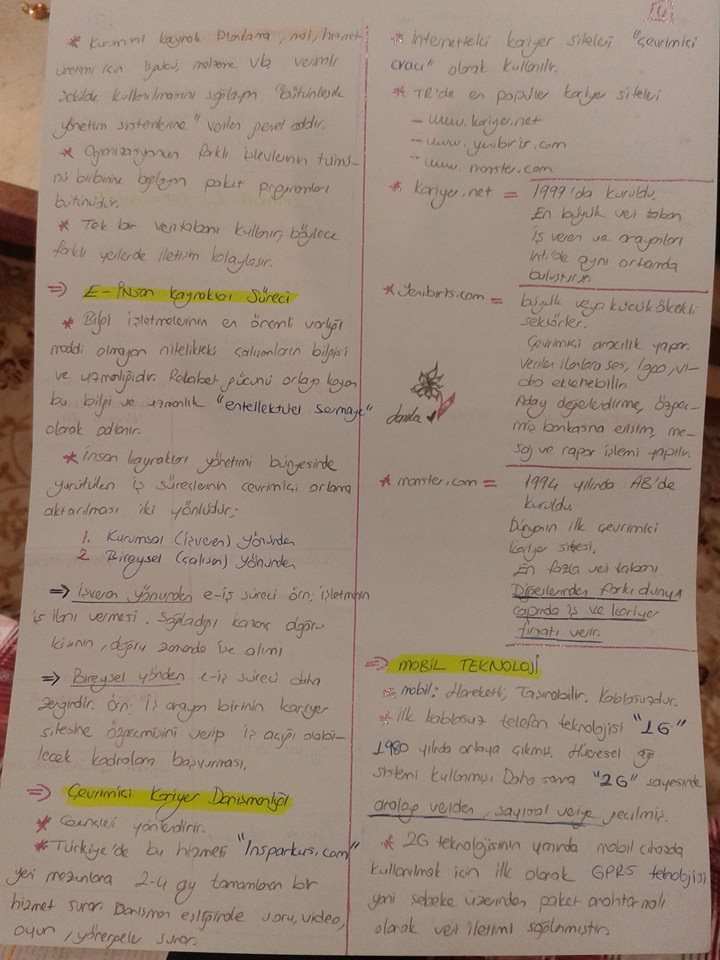 * Kurumsal kaynak planlama, mal, hizmet
üretimi için işgücü, makine vb. verimli
şekilde kullanılmasını sağlayan "bütünleşik
yönetim sistemlerine" verilen genel addır.
* Organizasyonun farklı işlevlerinin tümü-
nü birbirine bağlayan paket programları
bütünüdür.
* Tek bir veritabanı kullanır, böylece
farklı yerlerde iletişim kolaylaşır.
⇒ E-İnsan Kaynakları Süreci
* Bilgi işletmelerinin en önemli varlığı
maddi olmayan nitelikteki çalışanların bilgisi
ve uzmanlığıdır. Rekabet gücünü ortaya koyan
bu bilgi ve uzmanlık "entellektüel sermaye"
olarak adlanır.
* İnsan kaynakları yönetimi bünyesinde
yürütülen iş süreçlerinin çevrimiçi ortama
aktarılması iki yönlüdür;
1. Kurumsal (işveren) yönünden
2. Bireysel (çalışan) yönünden
⇒ İşveren yönünden e-iş süreci örn; işletmenin
iş ilanı vermesi. Sağladığı kaynak doğru
kişinin, doğru zamanda işe alımı
⇒ Bireysel yönden e-iş süreci daha
zengindir. örn: İş arayan birinin kariyer
sitesine özgeçmişini verip iş açığı olabi-
lecek kadrolara başvurması.
⇒ Çevrimiçi Kariyer Danışmanlığı
* Gençleri yönlendirir.
* Türkiye'de bu hizmeti "Insparkurs.com"
yeni mezunlara 2-4 ay tamamlanan bir
hizmet sunar. Danışman eşliğinde soru, video,
oyun, sunar.
* İnternetteki kariyer siteleri "çevrimiçi
aracı" olarak kullanılır.
* TR'de en popüler kariyer siteleri
- www.kariyer.net
- www.yenibiris.com
- www.monster.com
* kariyer.net = 1999'da kuruldu.
En büyük veri tabanı
İş veren ve arayanları
int.de aynı ortamda
buluşturur.
* Yenibiris.com = büyük veya küçük ölçekli
sektörler.
Çevrimiçi aracılık yapar.
Verilen ilanlara ses, logo, vi-
deo eklenebilir.
Aday değerlendirme, özgeç-
miş bankasına erişim, me-
saj ve rapor işlemi yapılır.
* monster.com = 1994 yılında AB'de
kuruldu
Dünyanın ilk çevrimiçi
kariyer sitesi.
En fazla veri tabanı
Diğerlerinden farkı dünya
çapında iş ve kariyer
fırsatı verir.
⇒ MOBİL TEKNOLOJİ
* mobil: Hareketli, Taşınabilir. Kablosuzdur.
* İlk kablosuz telefon teknolojisi "1G"
1980 yılında ortaya çıkmış. Hücresel ağ
sistemi kullanmış. Daha sonra "2G" sayesinde
analog veriden, sayısal veriye geçilmiş.
* 2G teknolojisinin yanında mobil cihazda
kullanılmak için ilk olarak GPRS teknolojisi
yeni şebeke üzerinden paket anahtarmalı
olarak veri iletimi sağlanmıştır.